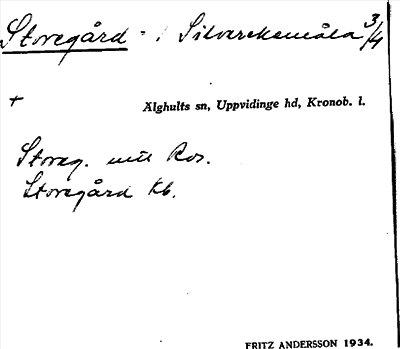 Storegård - i Silverekemåla 3/4
+ Älghults sn, Uppvidinge hd, Kronob. l.
Storeg. mtl Ros.
Storegård Kb.
FRITZ ANDERSSON 1934.